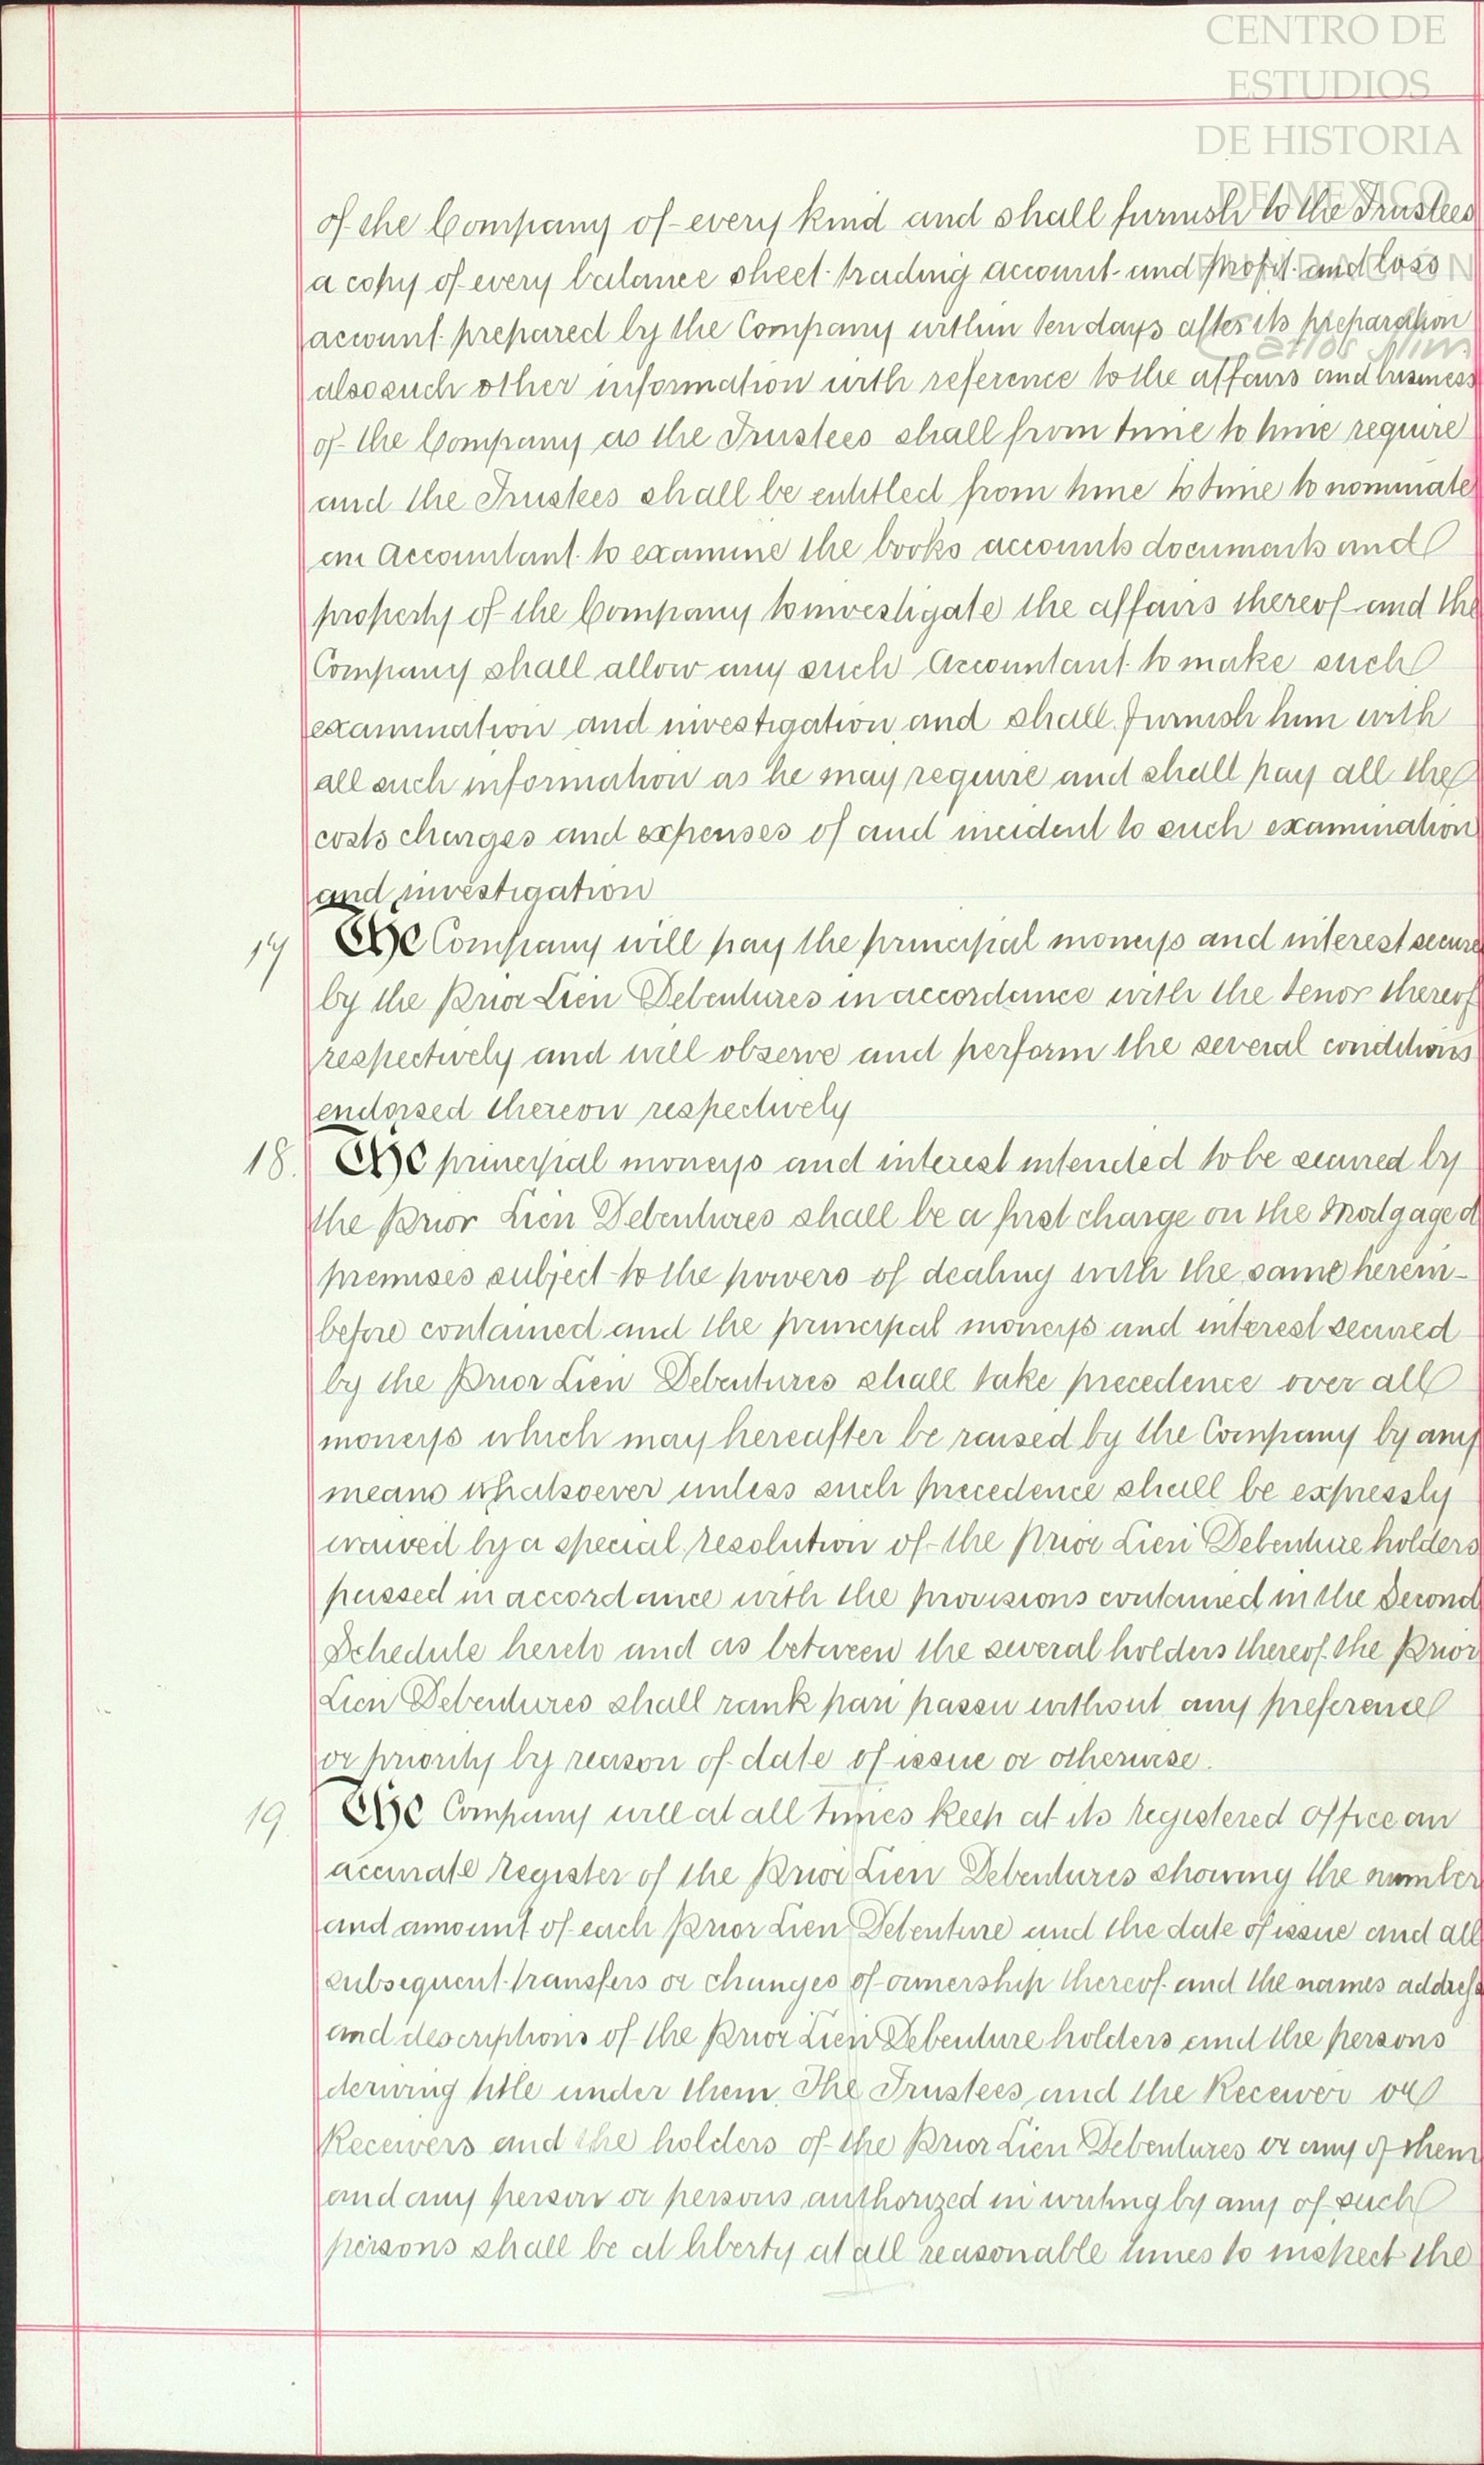 CENTRO DE
ESTUDIOS
DE HISTORIA
DE MEXICO
FUNDACIÓN
Carlos Slim
of the Company of every kind and shall furnish to the Trustees
a copy of every balance sheet trading account and profit and loss
account prepared by the Company within ten days after its preparation
also such other information with reference to the affairs and business
of the Company as the Trustees shall from time to time require
and the Trustees shall be entitled from time to time to nominate
an Accountant to examine the books accounts documents and
property of the Company to investigate the affairs thereof and the
Company shall allow any such Accountant to make such
examination and investigation and shall furnish him with
all such information as he may require and shall pay all the
costs charges and expenses of and incident to such examination
and investigation
17 The Company will pay the principal moneys and interest secure
by the Prior Lien Debentures in accordance with the tenor thereof
respectively and will observe and perform the several conditions
endorsed thereon respectively
18. The principal moneys and interest intended to be secured by
the Prior Lien Debentures shall be a first charge on the Mortgaged
premises subject to the powers of dealing with the same herein-
before contained and the principal moneys and interest secured
by the Prior Lien Debentures shall take precedence over all
moneys which may hereafter be raised by the Company by any
means whatsoever unless such precedence shall be expressly
waived by a special resolution of the Prior Lien Debenture holders
passed in accordance with the provisions contained in the Second
Schedule hereto and as between the several holders thereof the Prior
Lien Debentures shall rank pari passu without any preference
or priority by reason of date of issue or otherwise.
19. The Company will at all times keep at its registered office an
accurate register of the Prior Lien Debentures showing the number
and amount of each Prior Lien Debenture and the date of issue and all
subsequent transfers or changes of ownership thereof and the names address
and descriptions of the Prior Lien Debenture holders and the persons
deriving title under them. The Trustees and the Receiver or
Receivers and the holders of the Prior Lien Debentures or any of them
and any person or persons authorized in writing by any of such
persons shall be at liberty at all reasonable times to inspect the